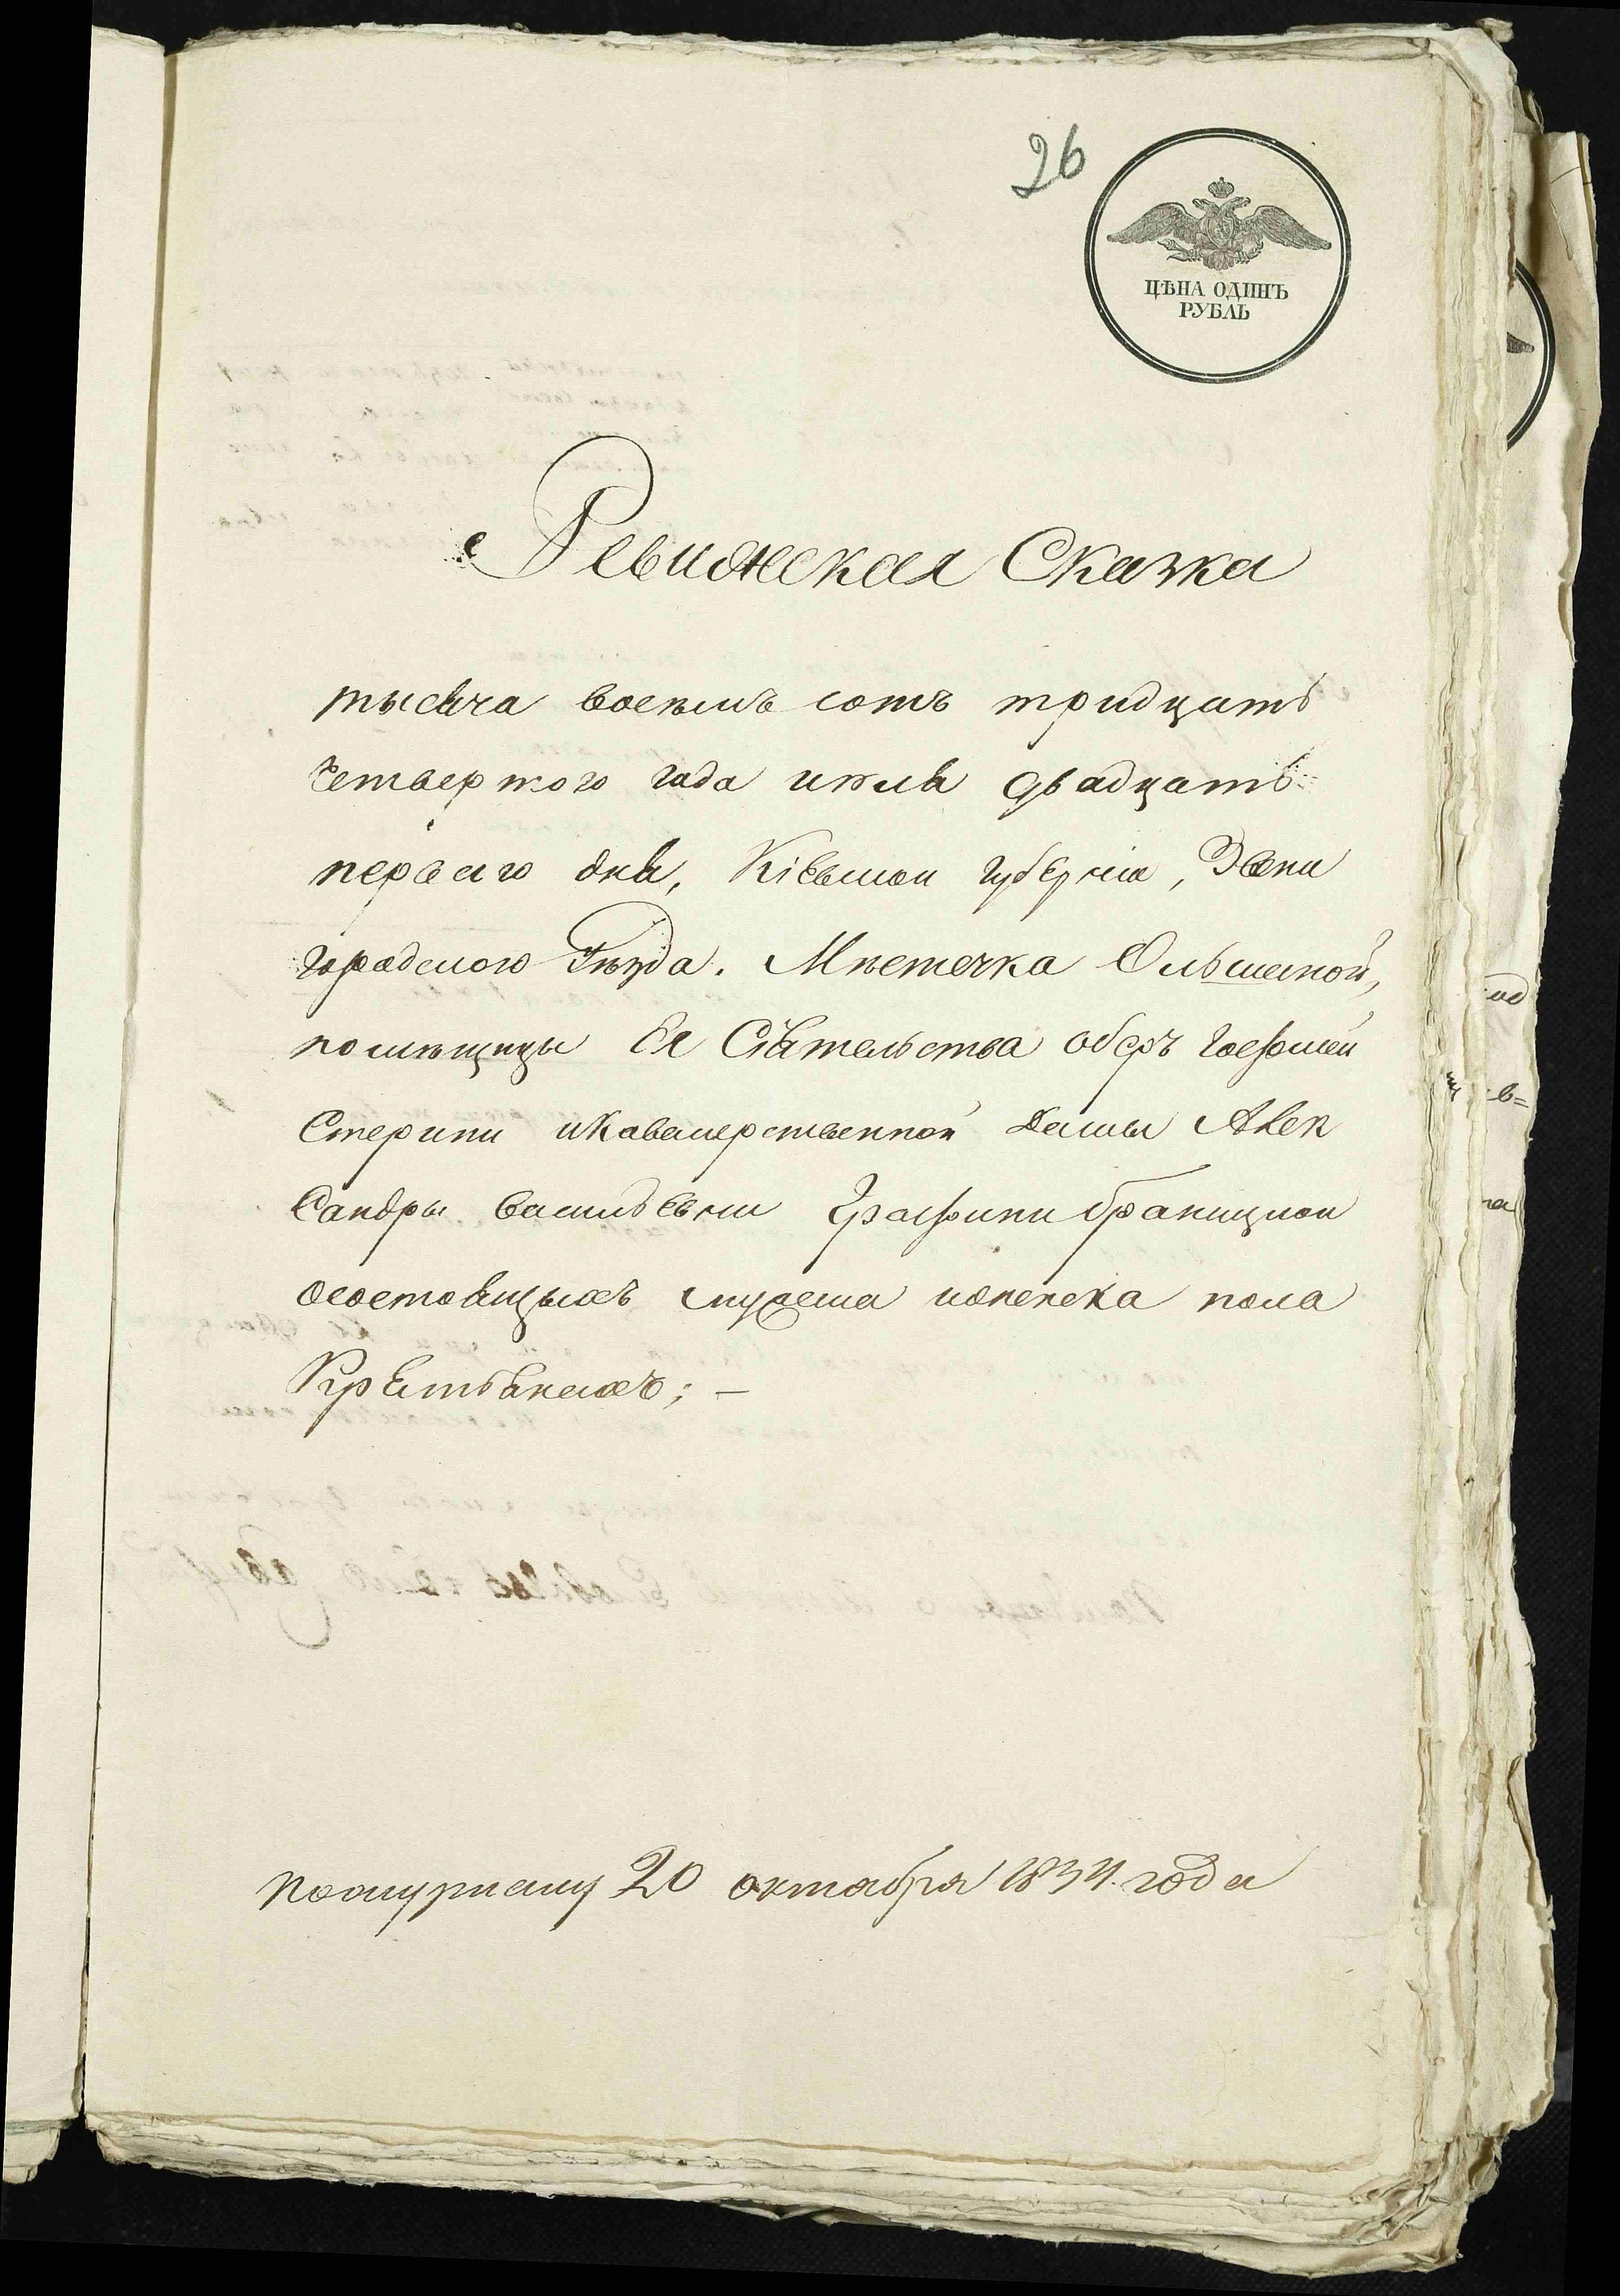 26
ЦѢНА ОДИНЪ
РУБЛЬ
Ревижская Сказка
тысяча восемъ сотъ тридцать
четвертого года июля двадцать
первого дня, Кіевской губерніи, Звени
городского уѣзда. Мѣстечка Ольшаной,
помѣщицы Ея Сіятельства оберъ гофмей
стерини икавалерственной дамы Алек
сандры васильевни Графини браницкой
осостоящыхъ мужеска иженска пола
Крѣстьянахъ; —
20 октября 1834 года